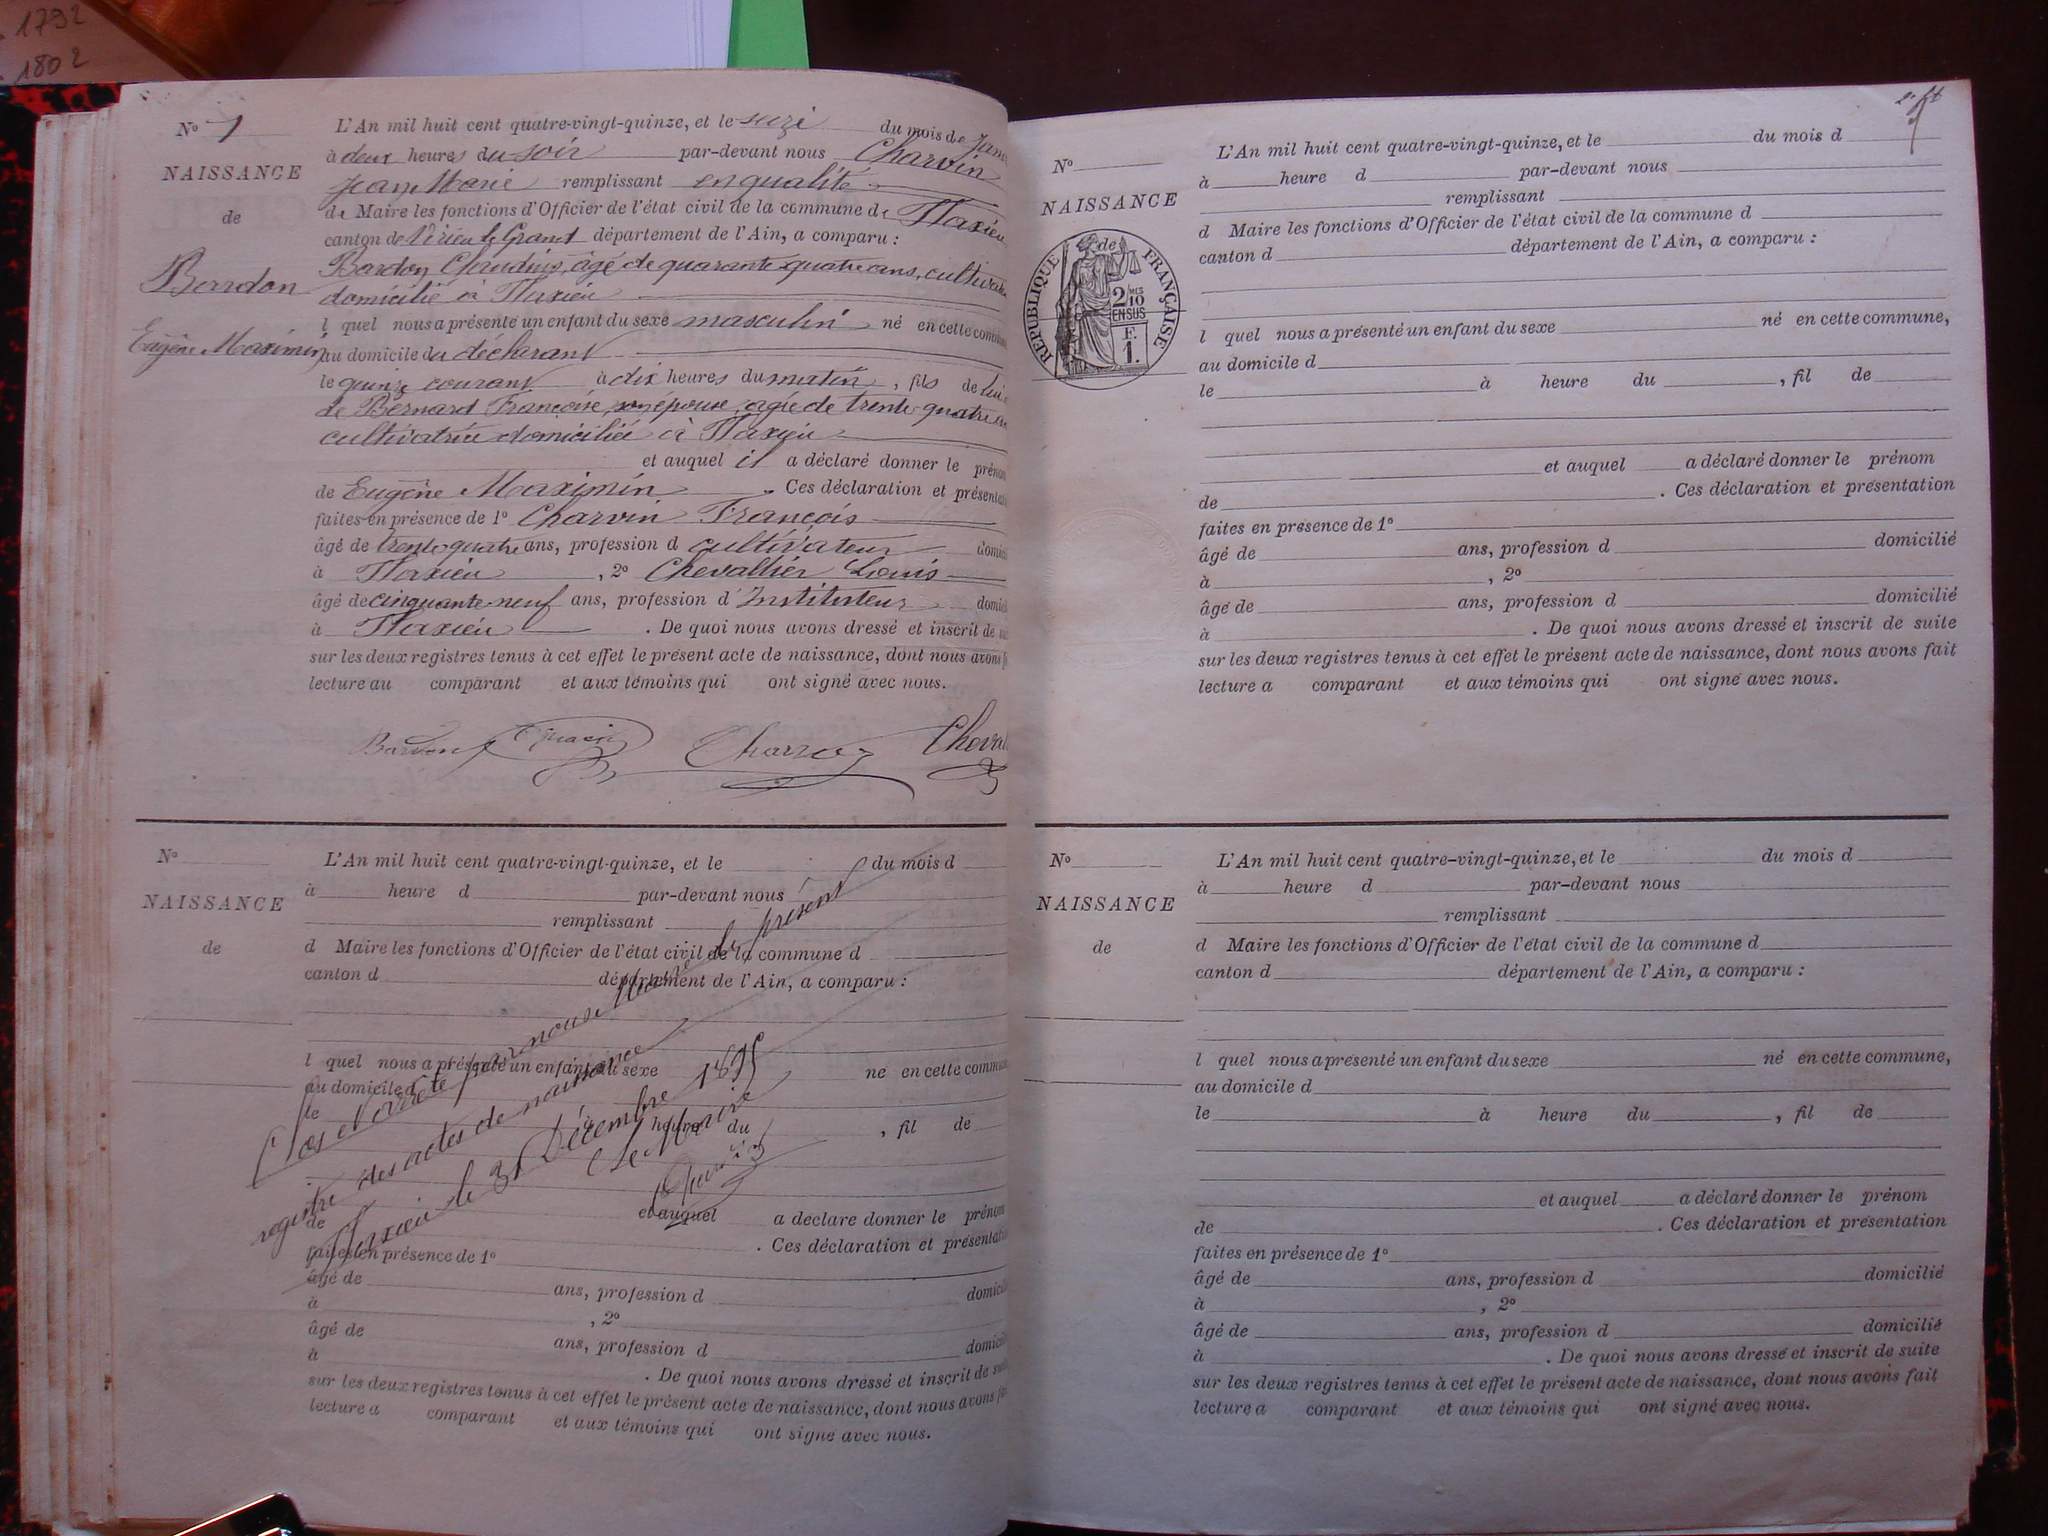 1792
1802
N° 1
NAISSANCE
de
Bardon
Eugène Maximin
L'An mil huit cent quatre-vingt-quinze, et le seize du mois de Janv
à deux heures du soir par-devant nous Charvin
Jean Marie remplissant en qualité
de Maire les fonctions d'Officier de l'état civil de la commune de Flaxieu
canton de Virieu le Grand département de l'Ain, a comparu :
Bardon Claudius, âgé de quarante quatre ans, cultivate
domicilié à Flaxieu
l quel nous a présenté un enfant du sexe masculin né en cette commune
au domicile du déclarant
le quinze courant à dix heures du matin, fils de lui
de Bernard Françoise, son épouse, agée de trente quatre an
cultivatrice domiciliée à Flaxieu
et auquel il a déclaré donner le prénom
de Eugène Maximin. Ces déclaration et présentat
faites en présence de 1° Charvin François
âgé de trente quatre ans, profession d cultivateur domici
à Flaxieu, 2° Chevallier Louis
âgé de cinquante-neuf ans, profession d'Instituteur domici
à Flaxieu. De quoi nous avons dressé et inscrit de su
sur les deux registres tenus à cet effet le présent acte de naissance, dont nous avons f
lecture au comparant et aux témoins qui ont signé avec nous.
Bardon Charvin Cheval
N°
NAISSANCE
de
L'An mil huit cent quatre-vingt-quinze, et le du mois d
à heure d par-devant nous
remplissant
d Maire les fonctions d'Officier de l'état civil de la commune d
canton d département de l'Ain, a comparu :
l quel nous a présenté un enfant du sexe né en cette commune
au domicile d
le à heure du , fil de
et auquel a déclaré donner le prénom
de . Ces déclaration et présentatio
faites en présence de 1°
âgé de ans, profession d domicili
à , 2°
âgé de ans, profession d domicili
à . De quoi nous avons dressé et inscrit de sui
sur les deux registres tenus à cet effet le présent acte de naissance, dont nous avons fa
lecture a comparant et aux témoins qui ont signé avec nous.
Clos et arrêté par nous Maire le présent
registre des actes de naissance
Flaxieu le 31 Décembre 1895
Le Maire
2e ft
N°
NAISSANCE
de
RÉPUBLIQUE FRANÇAISE
2/10
MES
EN SUS
F.
1.
L'An mil huit cent quatre-vingt-quinze, et le du mois d
à heure d par-devant nous
remplissant
d Maire les fonctions d'Officier de l'état civil de la commune d
canton d département de l'Ain, a comparu :
l quel nous a présenté un enfant du sexe né en cette commune,
au domicile d
le à heure du , fil de
et auquel a déclaré donner le prénom
de . Ces déclaration et présentation
faites en présence de 1°
âgé de ans, profession d domicilié
à , 2°
âgé de ans, profession d domicilié
à . De quoi nous avons dressé et inscrit de suite
sur les deux registres tenus à cet effet le présent acte de naissance, dont nous avons fait
lecture a comparant et aux témoins qui ont signé avec nous.
N°
NAISSANCE
de
L'An mil huit cent quatre-vingt-quinze, et le du mois d
à heure d par-devant nous
remplissant
d Maire les fonctions d'Officier de l'état civil de la commune d
canton d département de l'Ain, a comparu :
l quel nous a présenté un enfant du sexe né en cette commune,
au domicile d
le à heure du , fil de
et auquel a déclaré donner le prénom
de . Ces déclaration et présentation
faites en présence de 1°
âgé de ans, profession d domicilié
à , 2°
âgé de ans, profession d domicilié
à . De quoi nous avons dressé et inscrit de suite
sur les deux registres tenus à cet effet le présent acte de naissance, dont nous avons fait
lecture a comparant et aux témoins qui ont signé avec nous.